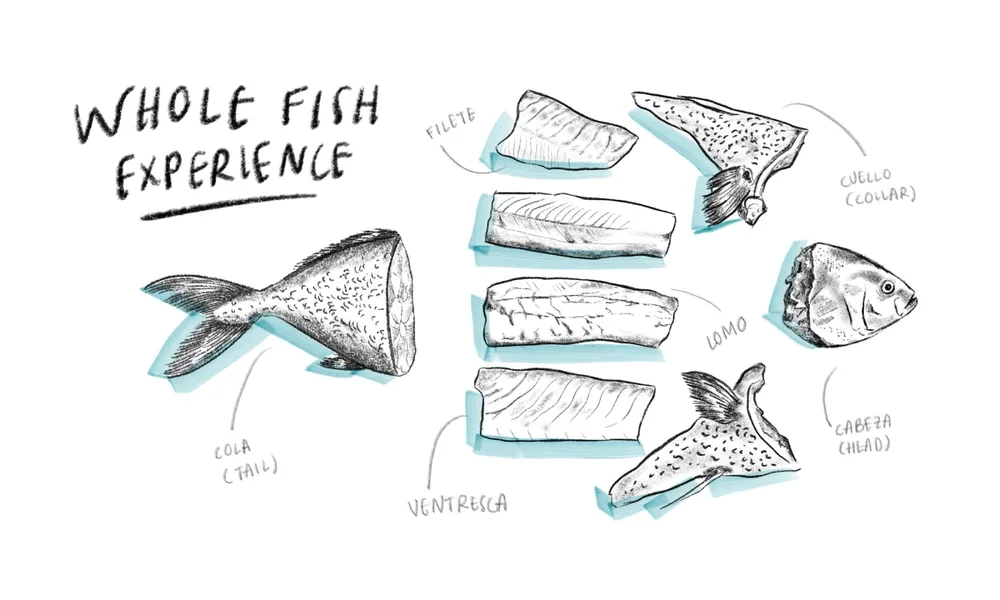 WHOLE FISH
EXPERIENCE
FILETE
CUELLO
(COLLAR)
LOMO
CABEZA
(HEAD)
COLA
(TAIL)
VENTRESCA